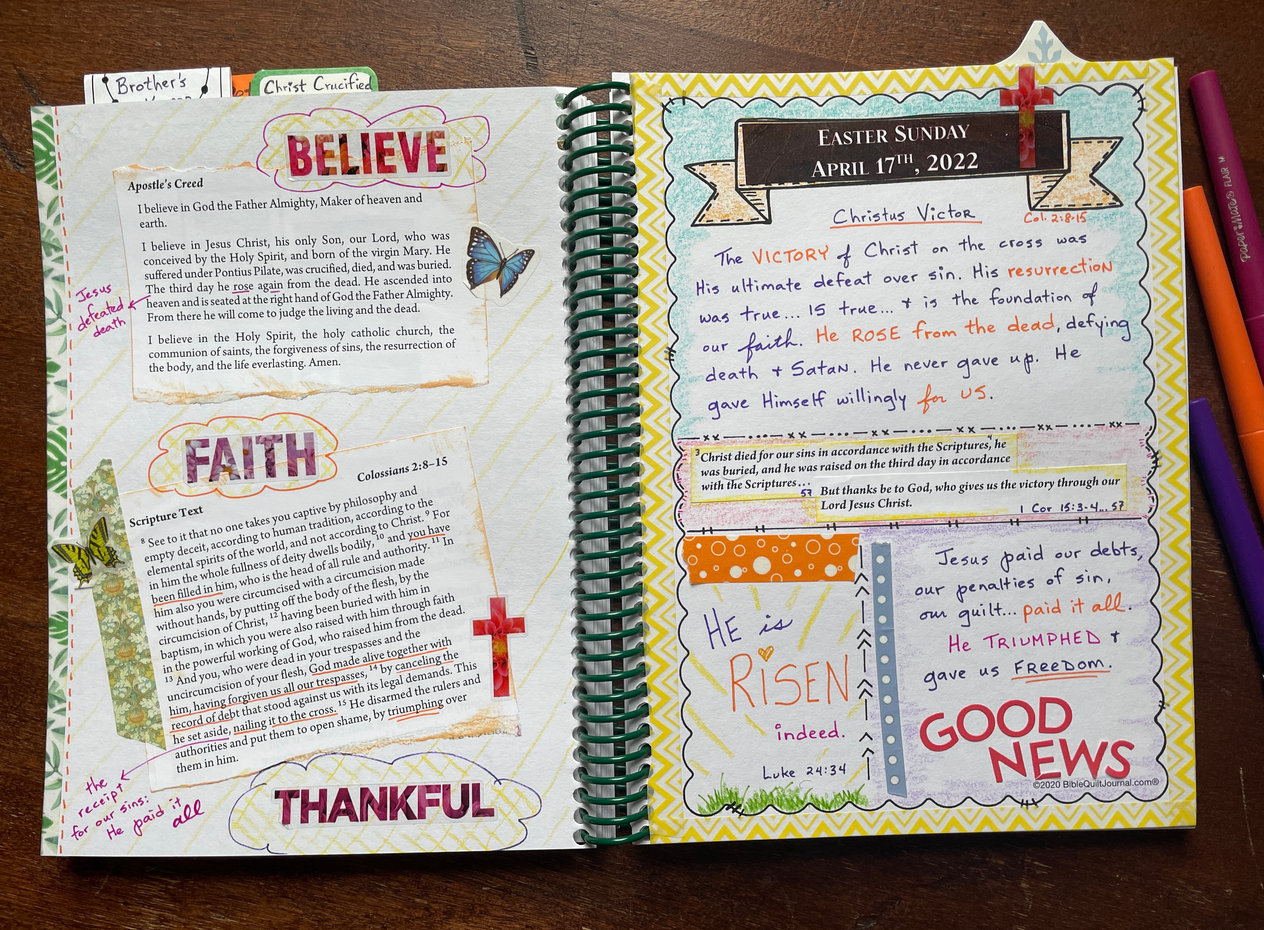 Brother's
Christ Crucified
BELIEVE
Apostle's Creed
I believe in God the Father Almighty, Maker of heaven and
earth.
I believe in Jesus Christ, his only Son, our Lord, who was
conceived by the Holy Spirit, and born of the virgin Mary. He
suffered under Pontius Pilate, was crucified, died, and was buried.
The third day he rose again from the dead. He ascended into
heaven and is seated at the right hand of God the Father Almighty.
From there he will come to judge the living and the dead.
I believe in the Holy Spirit, the holy catholic church, the
communion of saints, the forgiveness of sins, the resurrection of
the body, and the life everlasting. Amen.
Jesus
defeated
death
FAITH
Colossians 2:8–15
Scripture Text
8 See to it that no one takes you captive by philosophy and
empty deceit, according to human tradition, according to the
elemental spirits of the world, and not according to Christ. 9 For
in him the whole fullness of deity dwells bodily, 10 and you have
been filled in him, who is the head of all rule and authority. 11 In
him also you were circumcised with a circumcision made
without hands, by putting off the body of the flesh, by the
circumcision of Christ, 12 having been buried with him in
baptism, in which you were also raised with him through faith
in the powerful working of God, who raised him from the dead.
13 And you, who were dead in your trespasses and the
uncircumcision of your flesh, God made alive together with
him, having forgiven us all our trespasses, 14 by canceling the
record of debt that stood against us with its legal demands. This
he set aside, nailing it to the cross. 15 He disarmed the rulers and
authorities and put them to open shame, by triumphing over
them in him.
the
receipt
for our sins:
He paid it
all
THANKFUL
EASTER SUNDAY
APRIL 17TH, 2022
Christus Victor
Col. 2:8-15
The VICTORY of Christ on the cross was
His ultimate defeat over sin. His resurrection
was true... IS true... + is the foundation of
our faith. He ROSE from the dead, defying
death + Satan. He never gave up. He
gave Himself willingly for US.
3 Christ died for our sins in accordance with the Scriptures, 4 he
was buried, and he was raised on the third day in accordance
with the Scriptures...
57 But thanks be to God, who gives us the victory through our
Lord Jesus Christ.
1 Cor 15:3-4...57
HE is
RISEN
indeed.
Luke 24:34
Jesus paid our debts,
our penalties of sin,
our guilt... paid it all.
He TRIUMPHED +
gave us FREEDOM.
GOOD
NEWS
©2020 BibleQuiltJournal.com®
Paper:Mate FLAIR M